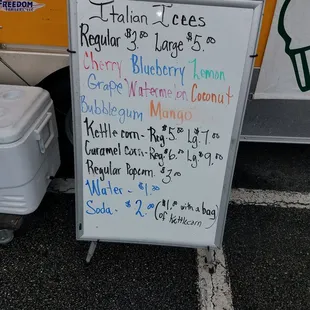 FREEDOM
Italian Icees
Regular $3.00 Large $5.00
Cherry Blueberry Lemon
Grape Watermelon Coconut
Bubblegum Mango
Kettle corn- Reg $5.00 Lg $7.00
Caramel Corn- Reg $6.00 Lg $9.00
Regular Popcorn $3.00
Water - $1.00
Soda - $2.00 ($1.00 with a bag)
of Kettlecorn